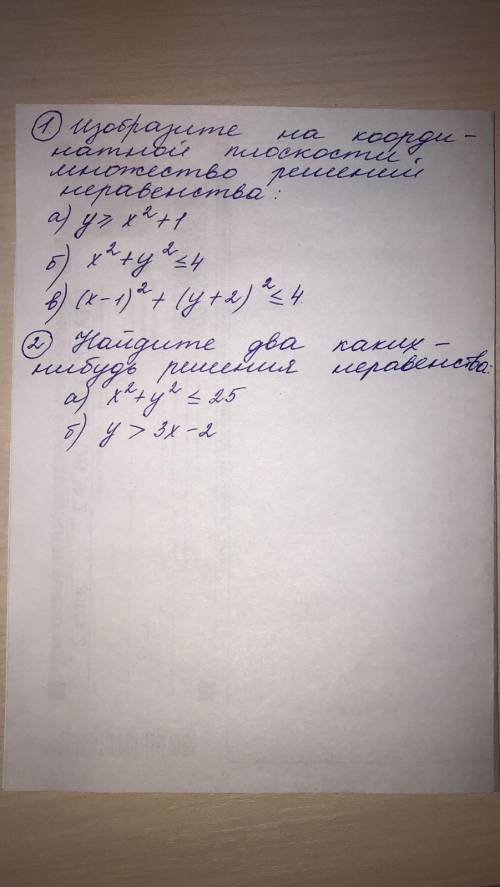 ① Изобразите на коорди-
натной плоскости
множество решений
неравенства:
а) y ⩾ x² + 1
б) x² + y² ≤ 4
в) (x-1)² + (y+2)² ≤ 4
② Найдите два каких-
нибудь решения неравенства:
а) x² + y² ≤ 25
б) y > 3x - 2